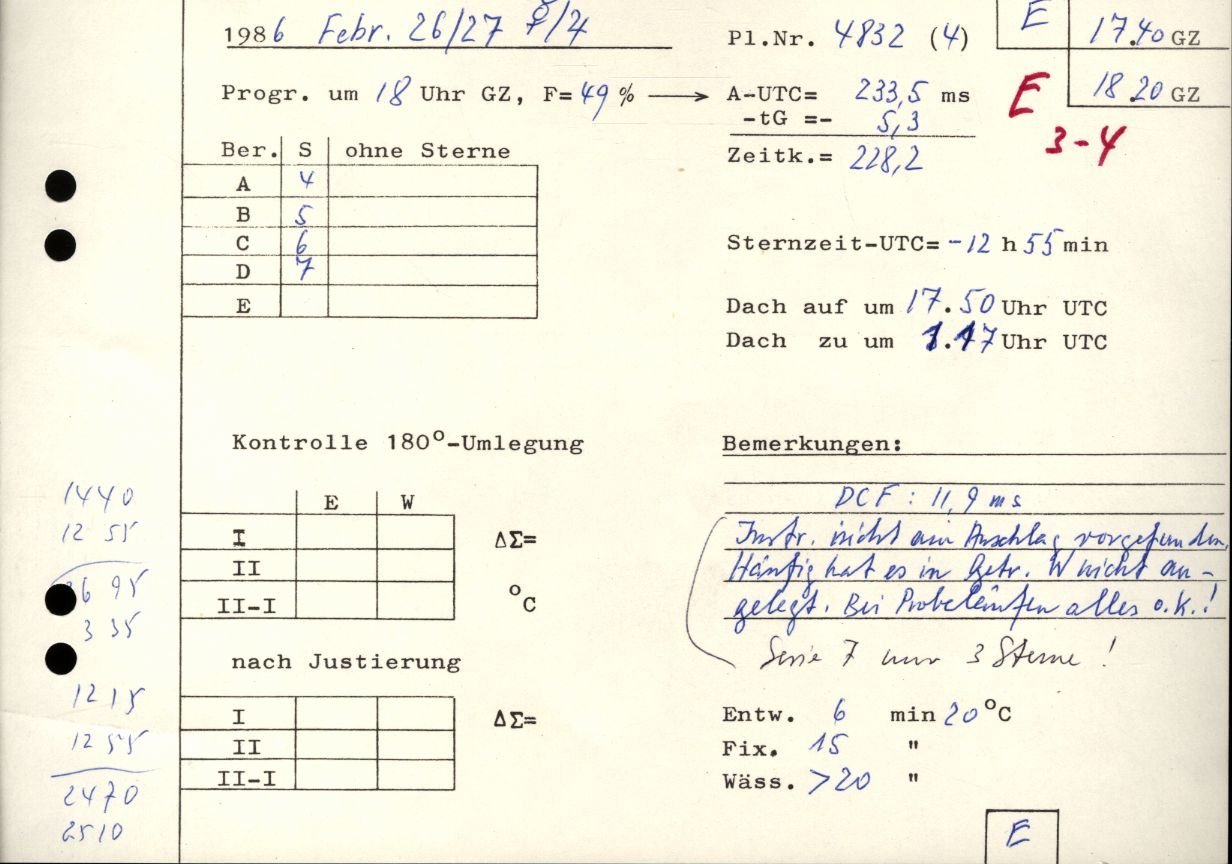 1986 Febr. 26/27 ☿/♃ Pl.Nr. 4832 (4) E 17.40 GZ
Progr. um 18 Uhr GZ, F= 49 % → A-UTC= 233,5 ms E 18.20 GZ
-tG =- 5,3 3-4
Ber. S ohne Sterne Zeitk.= 228,2
A 4
B 5
C 6 Sternzeit-UTC= -12 h 55 min
D 7
E Dach auf um 17.50 Uhr UTC
Dach zu um 1.17 Uhr UTC
Kontrolle 180°-Umlegung Bemerkungen:
E W DCF : 11,9 ms
I ΔΣ= Instr. nicht am Anschlag vorgefunden.
II Häufig hat es in Betr. W nicht an-
II-I °C gelegt. Bei Probeläufen alles o.k.!
nach Justierung Serie 7 nur 3 Sterne !
I ΔΣ= Entw. 6 min 20°C
II Fix. 15 "
II-I Wäss. >20 "
E
1440
12 55
26 95
3 35
12 15
12 55
2470
2510